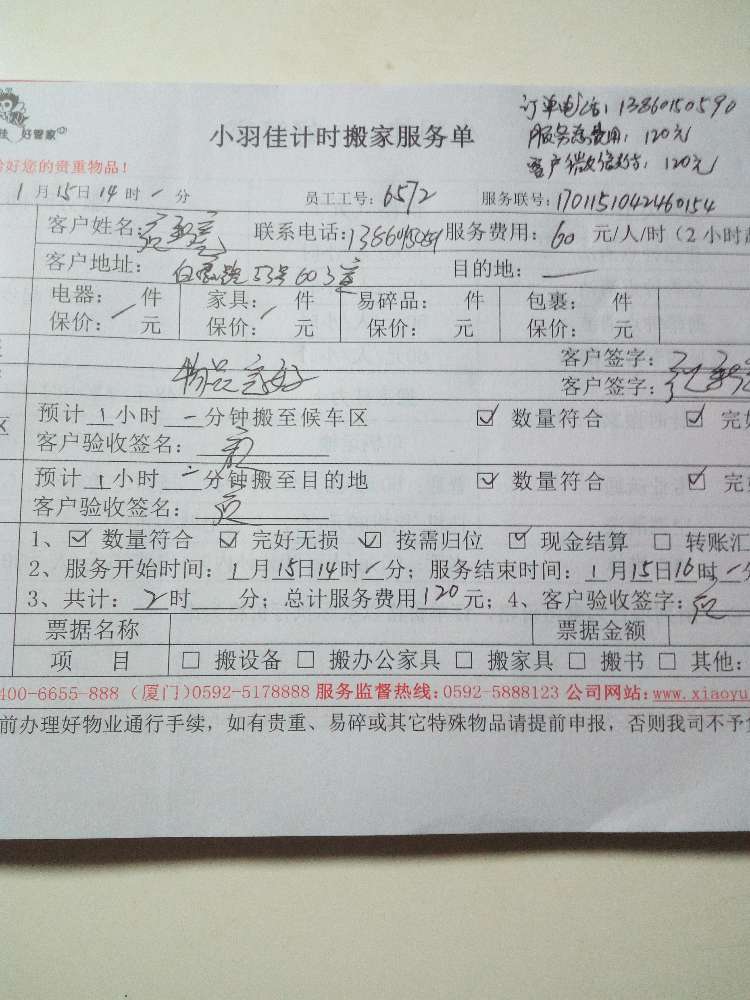 订单电话：13860150590
服务总费用：120元
客户微信支付：120元
好管家
小羽佳计时搬家服务单
好您的贵重物品！
1月15日14时/分 员工工号：6572 服务联号：1701151042460154
客户姓名： 联系电话： 服务费用：60元/人/时（2小时
客户地址：白鹭 53号603室 目的地：—
电器： 件 家具： 件 易碎品： 件 包裹： 件
保价：/元 保价：/元 保价： 元 保价： 元
客户签字：
物品完好 客户签字：
区 预计1小时一分钟搬至候车区 ☑ 数量符合 ☑ 完
客户验收签名：
预计1小时一分钟搬至目的地 ☑ 数量符合 ☑ 完
客户验收签名：
1、☑ 数量符合 ☑ 完好无损 ☑ 按需归位 ☑ 现金结算 □ 转账汇
2、服务开始时间：1月15日14时/分；服务结束时间：1月15日16时/分
3、共计：2时 分；总计服务费用120元；4、客户验收签字：
票据名称 票据金额
项 目 □ 搬设备 □ 搬办公家具 □ 搬家具 □ 搬书 □ 其他：
400-6655-888（厦门）0592-5178888 服务监督热线：0592-5888123 公司网站：www.xiaoyu
前办理好物业通行手续，如有贵重、易碎或其它特殊物品请提前申报，否则我司不予